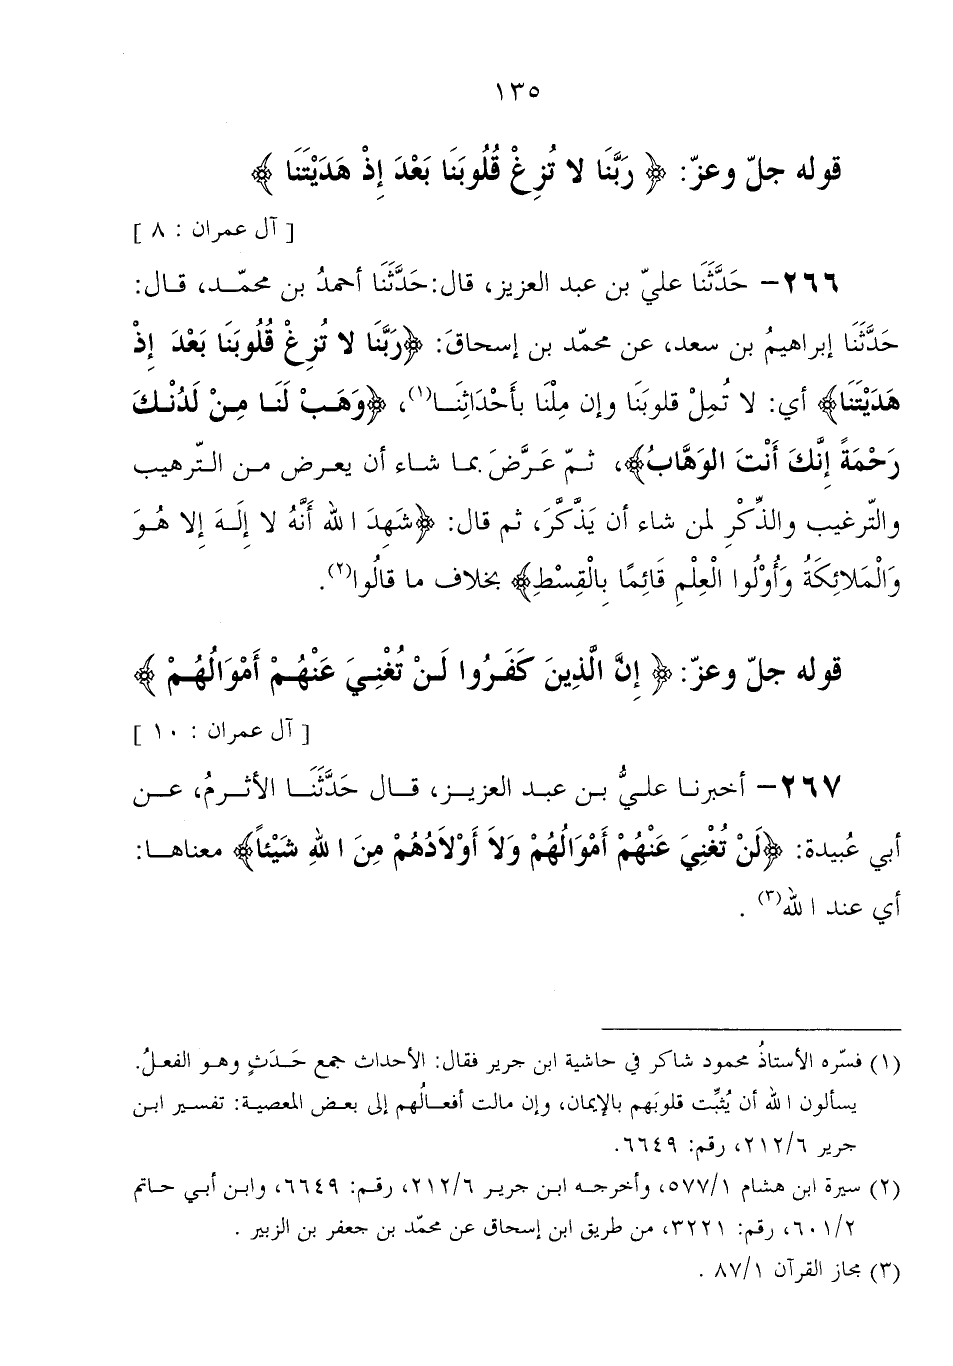 ١٣٥
قوله جلّ وعزّ: ﴿ رَبَّنَا لا تُزِغْ قُلُوبَنَا بَعْدَ إِذْ هَدَيْتَنَا ﴾
[ آل عمران : ٨ ]
٢٦٦– حَدَّثَنَا عليّ بن عبد العزيز، قال: حَدَّثَنَا أحمدُ بن محمّـد، قـال:
حَدَّثَنَا إبراهيمُ بن سعد، عن محمّد بن إسحاقَ: ﴿رَبَّنَا لا تُزِغْ قُلُوبَنَا بَعْدَ إِذْ
هَدَيْتَنَا﴾ أي: لا تُمِلْ قلوبَنَا وإن مِلْنَا بأَحْدَاثِنَــا(١)، ﴿وَهَـبْ لَنَـا مِـنْ لَدُنْـكَ
رَحْمَةً إِنَّكَ أَنْتَ الوَهَّابُ﴾، ثـمّ عَرَّضَ بمـا شـاء أن يعـرض مـن الـتّرهيب
والتّرغيب والذِّكْرِ لمن شاء أن يَذَّكَّرَ، ثم قال: ﴿شَهِدَ الله أَنَّهُ لا إِلَـهَ إِلا هُـوَ
وَالْمَلائِكَةُ وَأُوْلُوا الْعِلْمِ قَائِمًا بِالْقِسْطِ﴾ بخلاف ما قالُوا(٢).
قوله جلّ وعزّ: ﴿ إِنَّ الَّذِينَ كَفَـرُوا لَـنْ تُغْنِـيَ عَنْهُـمْ أَمْوَالُهُـمْ ﴾
[ آل عمران : ١٠ ]
٢٦٧– أخبرنـا علـيُّ بـن عبـد العزيـز، قـال حَدَّثَنَــا الأثـرمُ، عـن
أبي عُبيدة: ﴿لَنْ تُغْنِيَ عَنْهُمْ أَمْوَالُهُمْ وَلاَ أَوْلاَدُهُمْ مِنَ اللهِ شَيْئاً﴾ معناهـا:
أي عند الله(٣) .
(١) فسّره الأستاذُ محمود شاكر في حاشية ابن جرير فقال: الأحداث جمع حَـدَثٍ وهـو الفعلُ.
يسألون الله أن يُثبِّت قلوبَهم بالإيمان، وإن مالت أفعـالُهم إلى بعـض المعصيـة: تفسـير ابـن
جرير ٢١٢/٦، رقم: ٦٦٤٩.
(٢) سيرة ابن هشام ٥٧٧/١، وأخرجـه ابـن جريـر ٢١٢/٦، رقـم: ٦٦٤٩، وابـن أبـي حـاتم
٦٠١/٢، رقم: ٣٢٢١، من طريق ابن إسحاق عن محمّد بن جعفر بن الزبير .
(٣) مجاز القرآن ٨٧/١ .